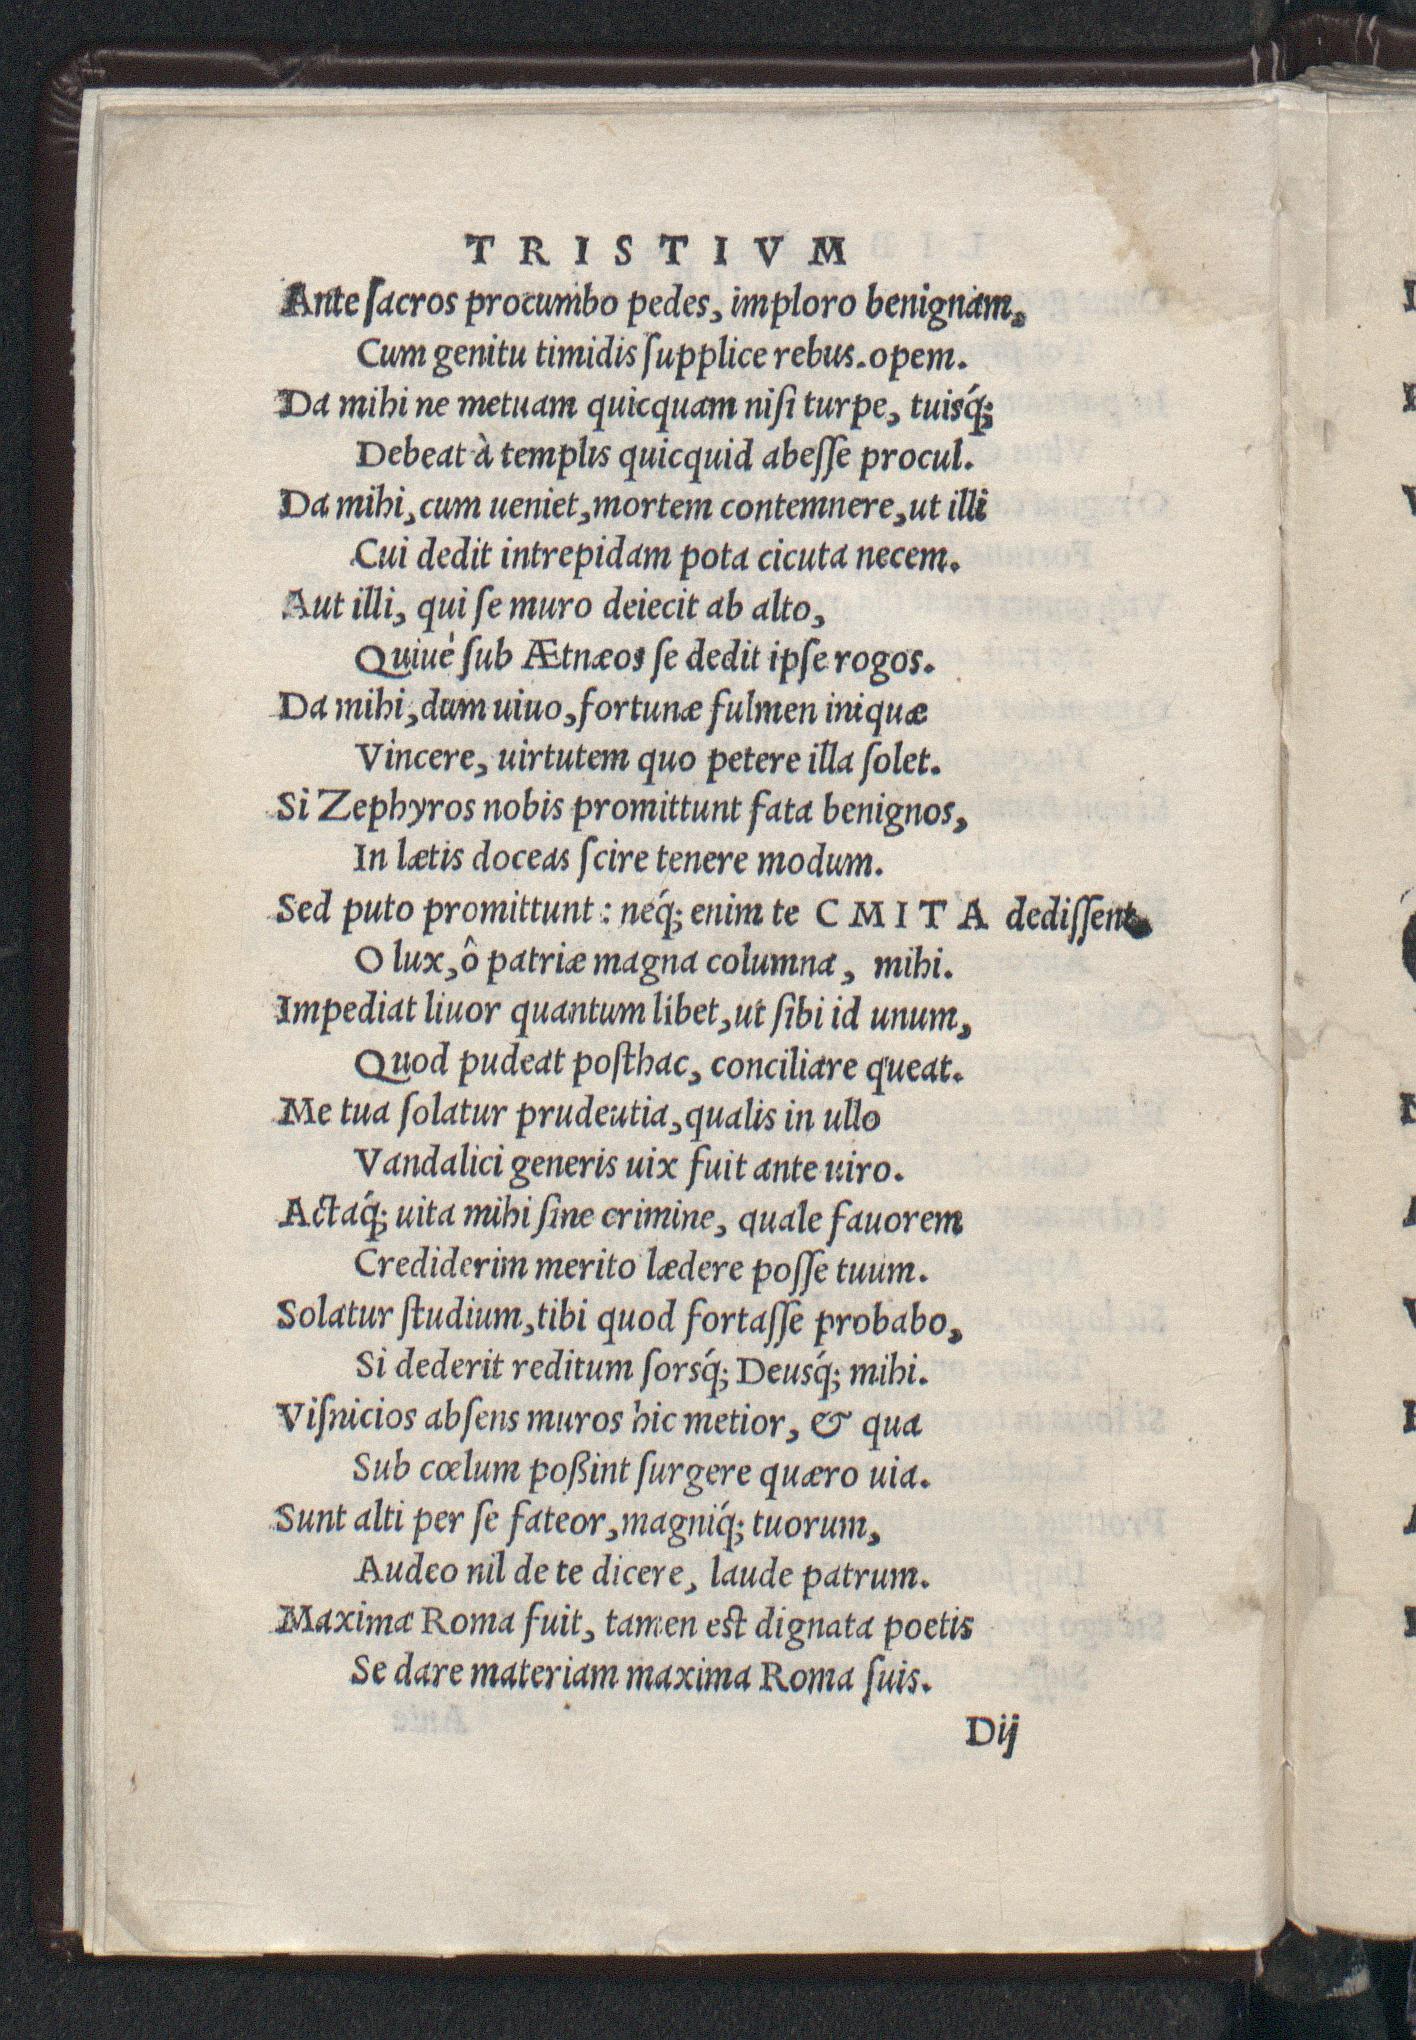 TRISTIVM
Ante ſacros procumbo pedes, imploro benignam,
Cum genitu timidis ſupplice rebus.opem.
Da mihi ne metuam quicquam niſi turpe, tuisq́;
Debeat à templis quicquid abeſſe procul.
Da mihi, cum ueniet, mortem contemnere, ut illi
Cui dedit intrepidam pota cicuta necem.
Aut illi, qui ſe muro deiecit ab alto,
Quiué ſub Ætnæos ſe dedit ipſe rogos.
Da mihi, dum uiuo, fortunæ fulmen iniquæ
Vincere, uirtutem quo petere illa ſolet.
Si Zephyros nobis promittunt fata benignos,
In lætis doceas ſcire tenere modum.
Sed puto promittunt : neq́; enim te CMITA dediſſent
O lux, ô patriæ magna columna, mihi.
Impediat liuor quantum libet, ut ſibi id unum,
Quod pudeat poſthac, conciliare queat.
Me tua ſolatur prudeutia, qualis in ullo
Vandalici generis uix fuit ante uiro.
Actaq́; uita mihi ſine crimine, quale fauorem
Crediderim merito lædere poſſe tuum.
Solatur ſtudium, tibi quod fortaſſe probabo,
Si dederit reditum ſorsq́; Deusq́; mihi.
Viſnicios abſens muros hic metior, & qua
Sub cœlum poßint ſurgere quæro uia.
Sunt alti per ſe fateor, magniq́; tuorum,
Audeo nil de te dicere, laude patrum.
Maxima Roma fuit, tamen eſt dignata poetis
Se dare materiam maxima Roma ſuis.
Dij